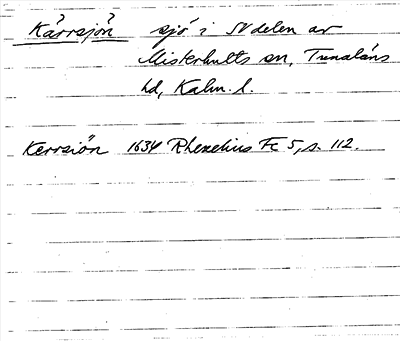 Kärrsjön sjö i SV delen av
Misterhults sn, Tunaläns
hd, Kalm. l.
Kerrsiön 1634 Rhezelius Fc 5, s. 112.